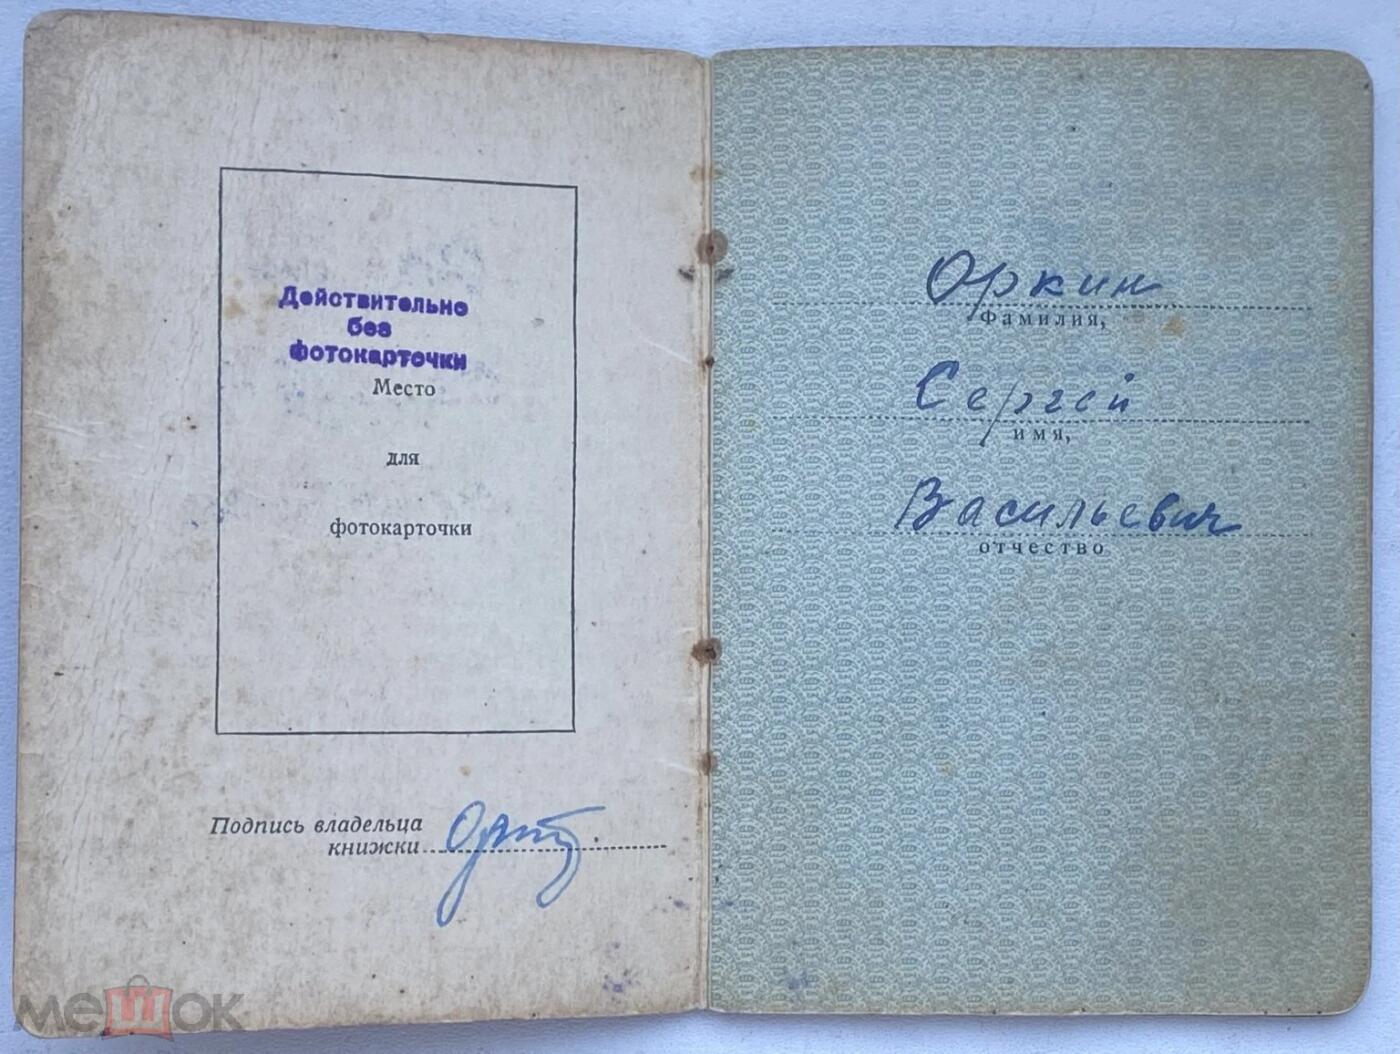 Действительно
без
фотокарточки
Место
для
фотокарточки
Подпись владельца
книжки
Оркин
Фамилия,
Сергей
имя,
Васильевич
отчество
мешок